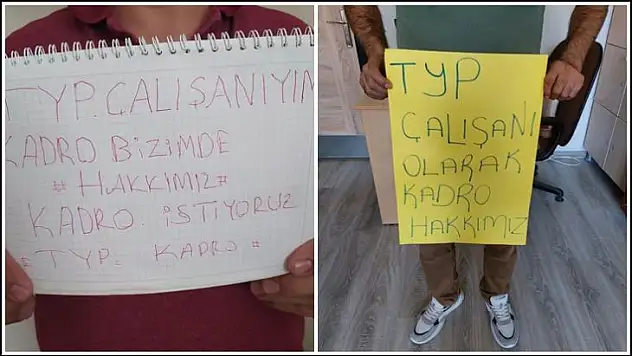 TYP. ÇALIŞANIYIM
KADRO BİZİMDE
# HAKKIMIZ #
KADRO İSTİYORUZ
# TYP = KADRO #
TYP
ÇALIŞANI
OLARAK
KADRO
HAKKIMIZ